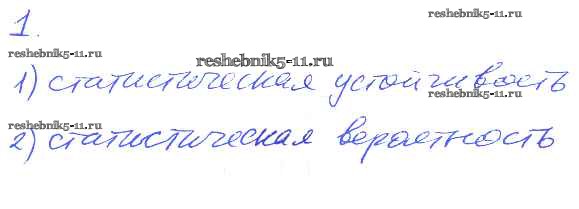 1.
reshebnik5-11.ru
reshebnik5-11.ru
reshebnik5-11.ru
1) статистическая устойчивость
reshebnik5-11.ru
reshebnik5-11.ru
2) статистическая вероятность